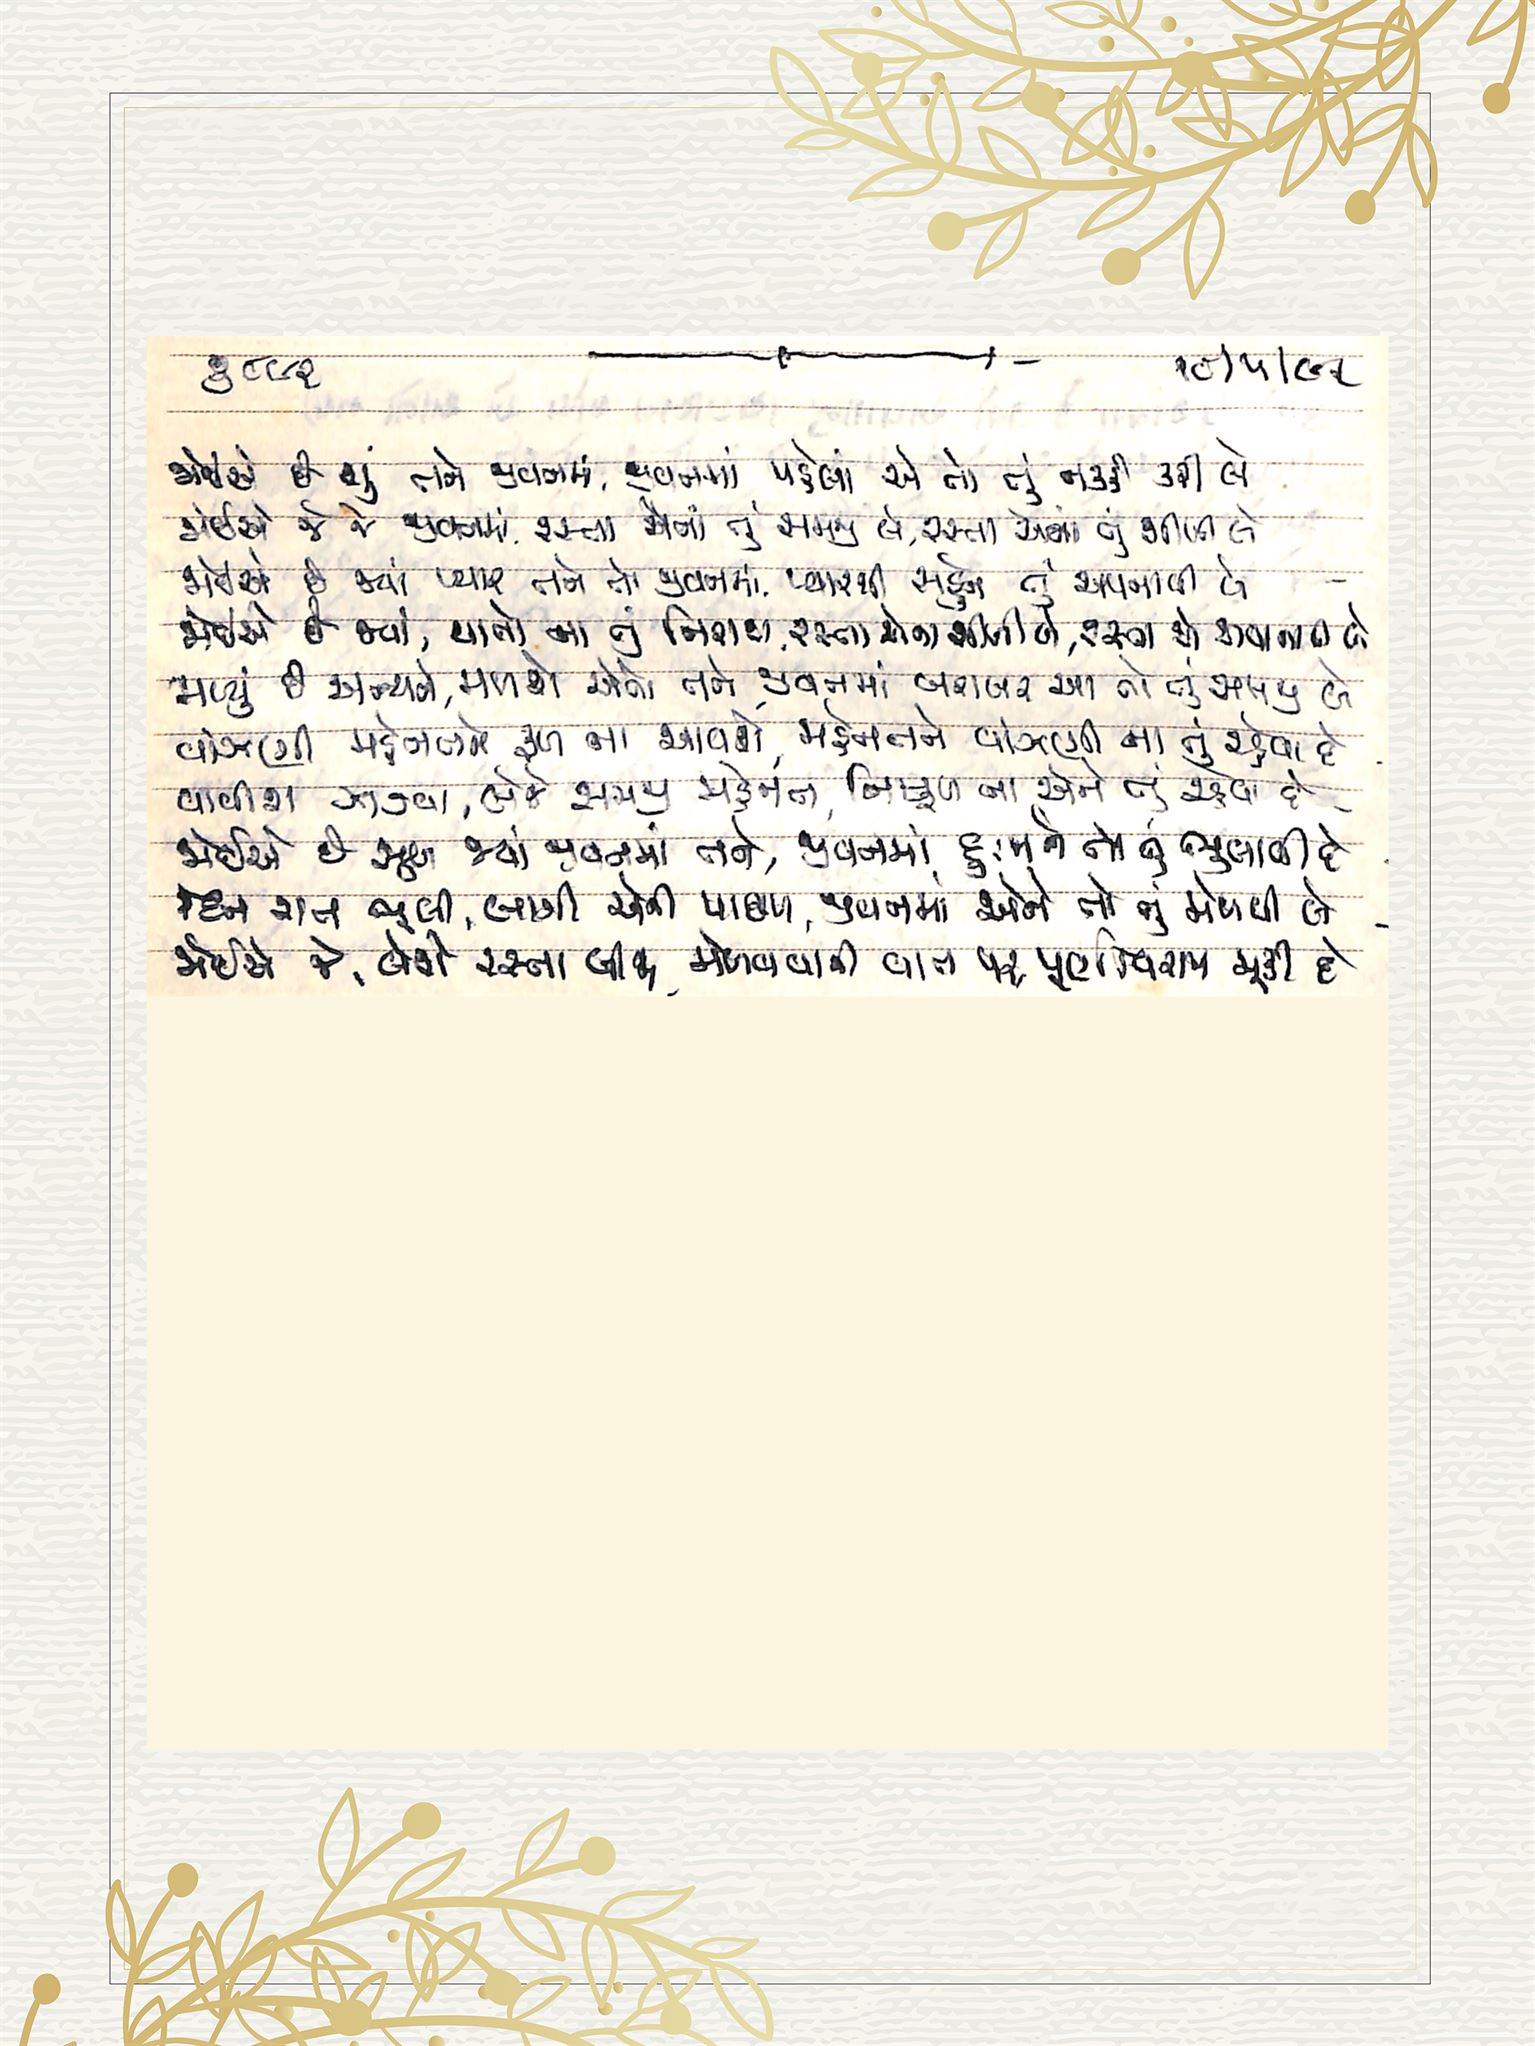 ૧૮/૫/૯૨
જોઈએ છે શું તને જીવનમાં, જીવનમાં પહેલાં એ તો તું નક્કી કરી લે
જોઈએ જે જે જીવનમાં, રસ્તા એનાં તું સમજી લે, રસ્તા એનાં તું શીખી લે
જોઈએ છે જ્યાં પ્યાર તને તો જીવનમાં, પ્યારથી સહુને તું અપનાવી લે
જોઈએ છે જ્યાં, થાતો ના તું નિરાશ, રસ્તા એના શીખી લે, રસ્તા એ અપનાવી લે
મળ્યું છે અન્યને, મળશે એ તો તને જીવનમાં બરાબર આ તો તું સમજી લે
વાંઝણી મહેનતને ફળ ના આવશે, મહેનતને વાંઝણી ના તું રહેવા દે
વાવીશ ઝાડવા, લેજે સમજી મહેનત, નિષ્ફળ ના એને તું રહેવા દે
જોઈએ છે સુખ જ્યાં જીવનમાં તને, જીવનમાં દુઃખને તો તું ભુલાવી દે
દિન રાત ભૂલી, લાગી એની પાછળ, જીવનમાં એને તો તું મેળવી લે
જોઈએ જે, લેશે રસ્તા બીજા, મેળવવાની વાત પર પૂર્ણવિરામ મૂકી દે